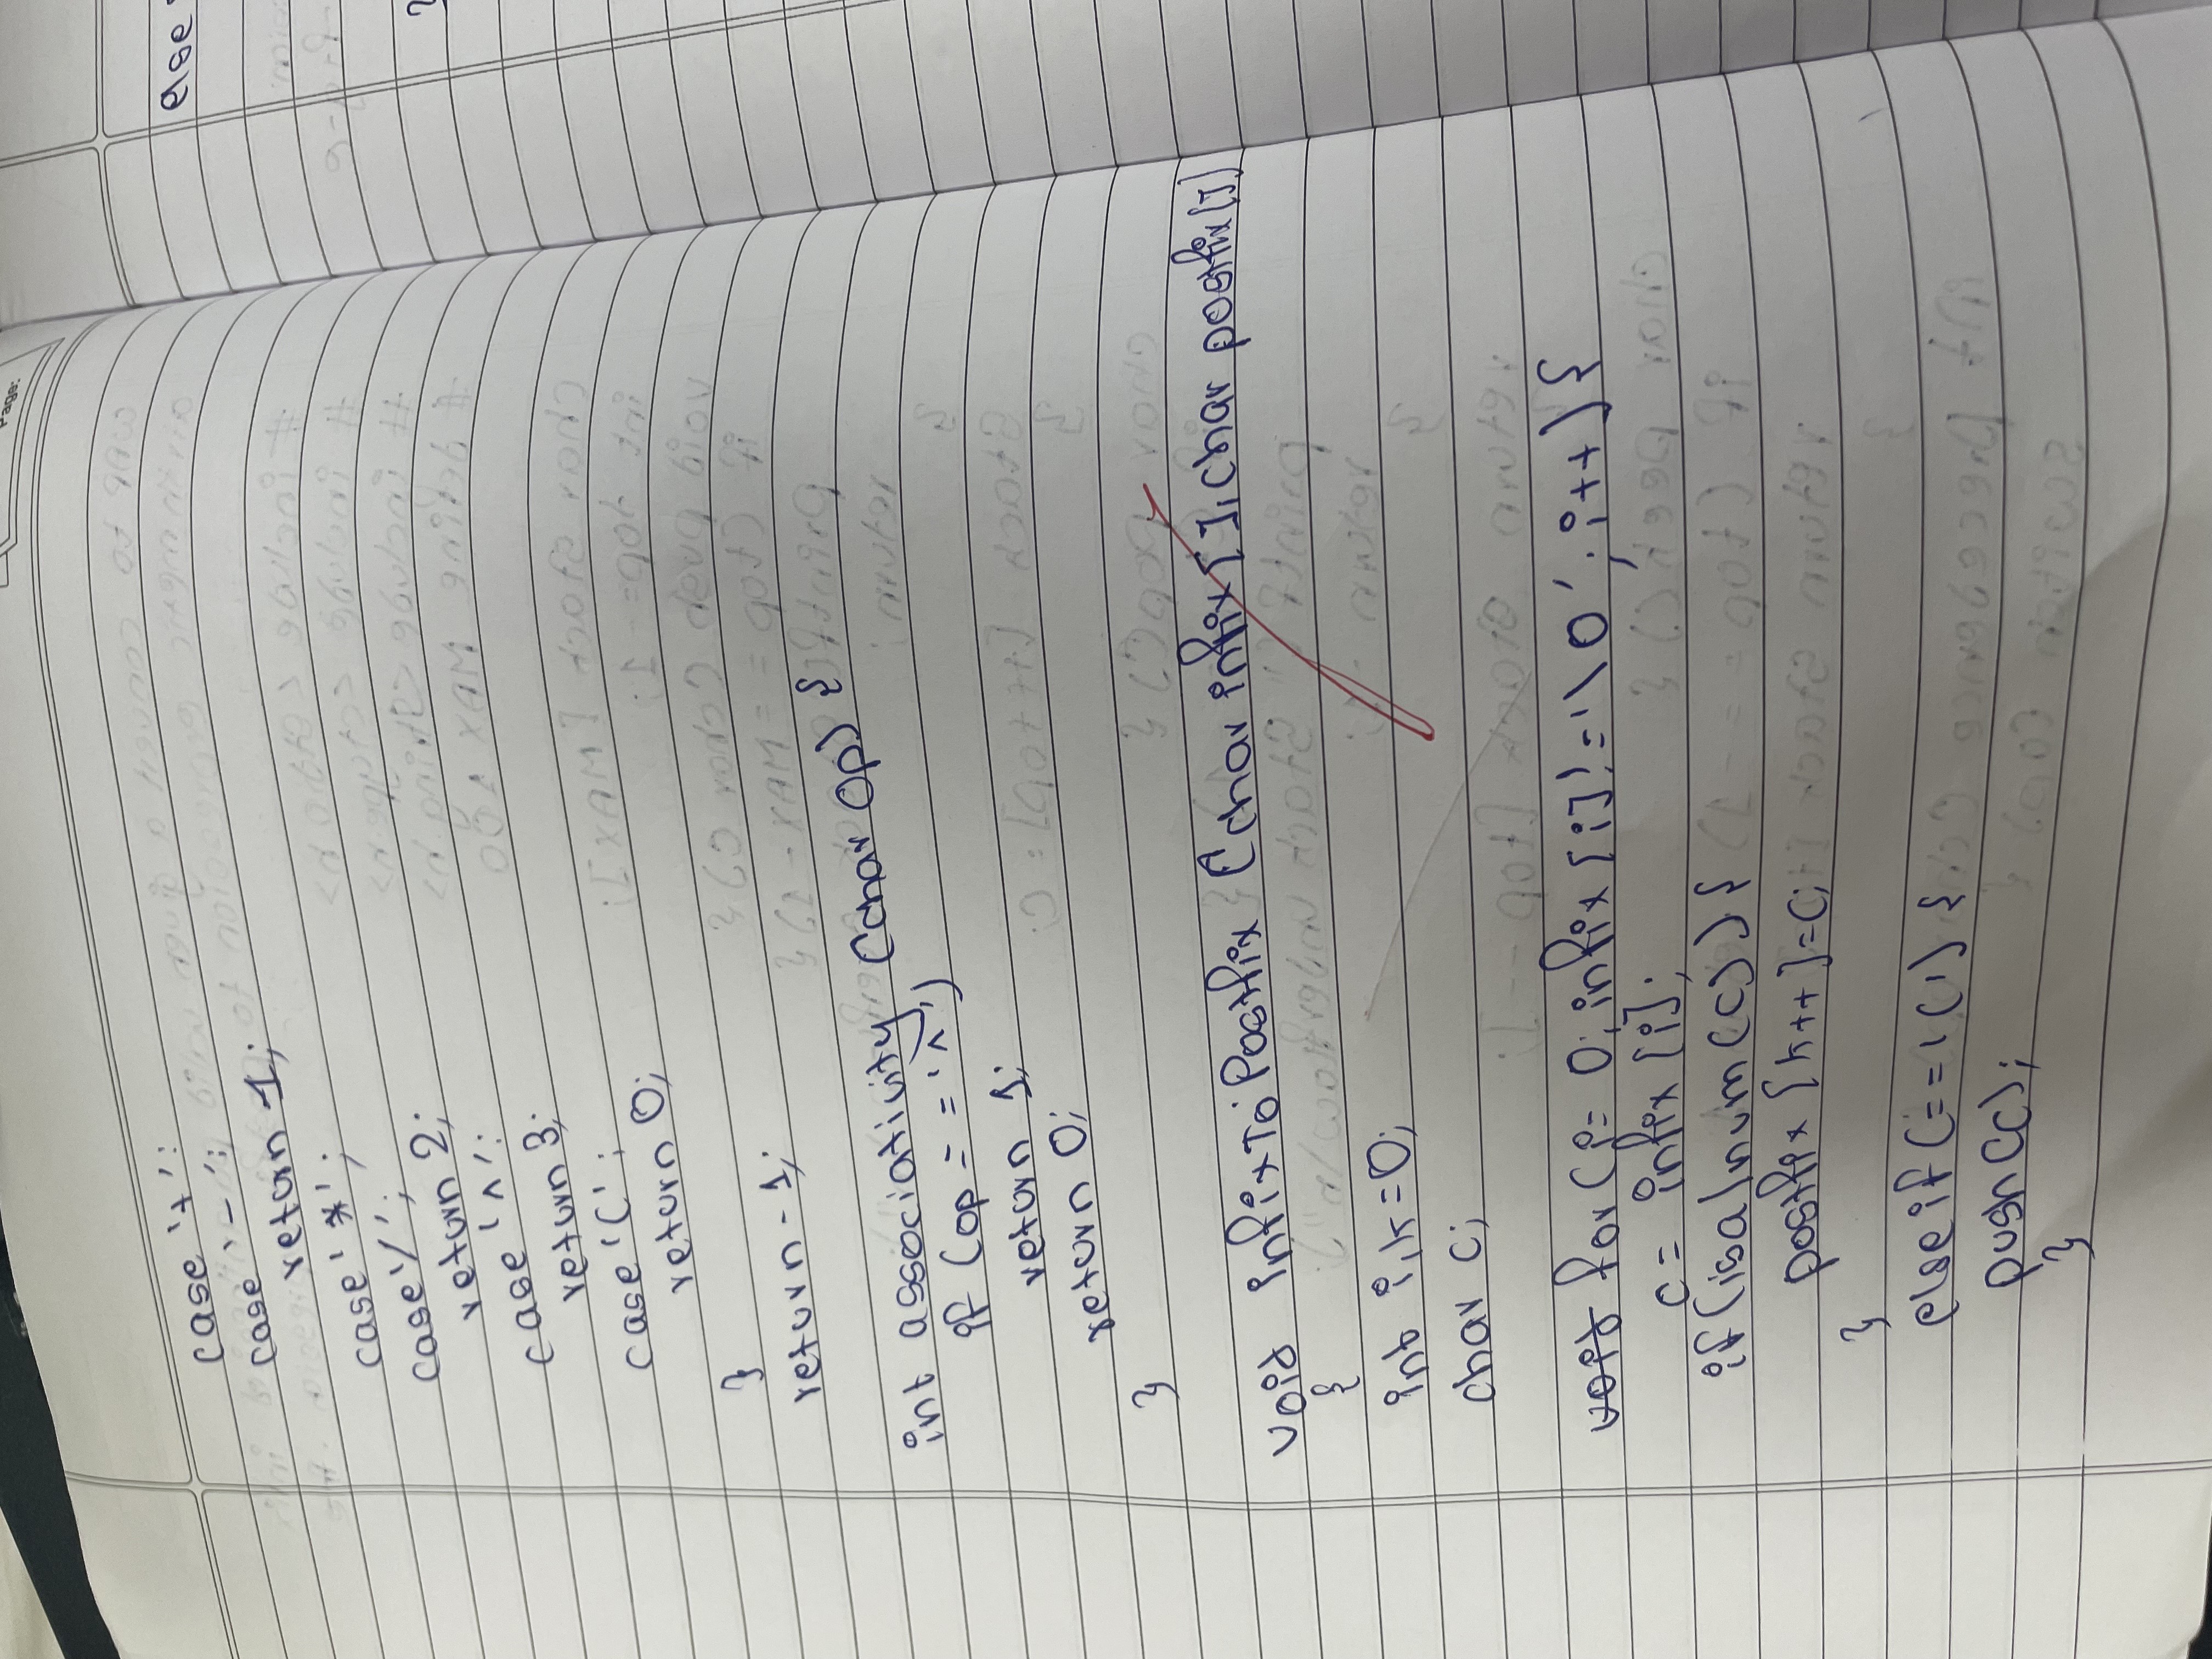 Page:
case '+':
case '-':
return 1;
case '*';
case '/';
return 2;
case '^':
return 3;
case '(';
return 0;
}
return -1;
int associativity (char op) {
if (op = = '^')
return 1;
return 0;
}
void infixToPostfix (char infix[], char postfix[])
{
int i, k=0;
char c;
void for (i= 0; infix [i] != '\0'; i++) {
c= infix [i];
if (isalnum(c)) {
postfix [k++]=c;
}
else if (== '(') {
push (c);
}
else
}